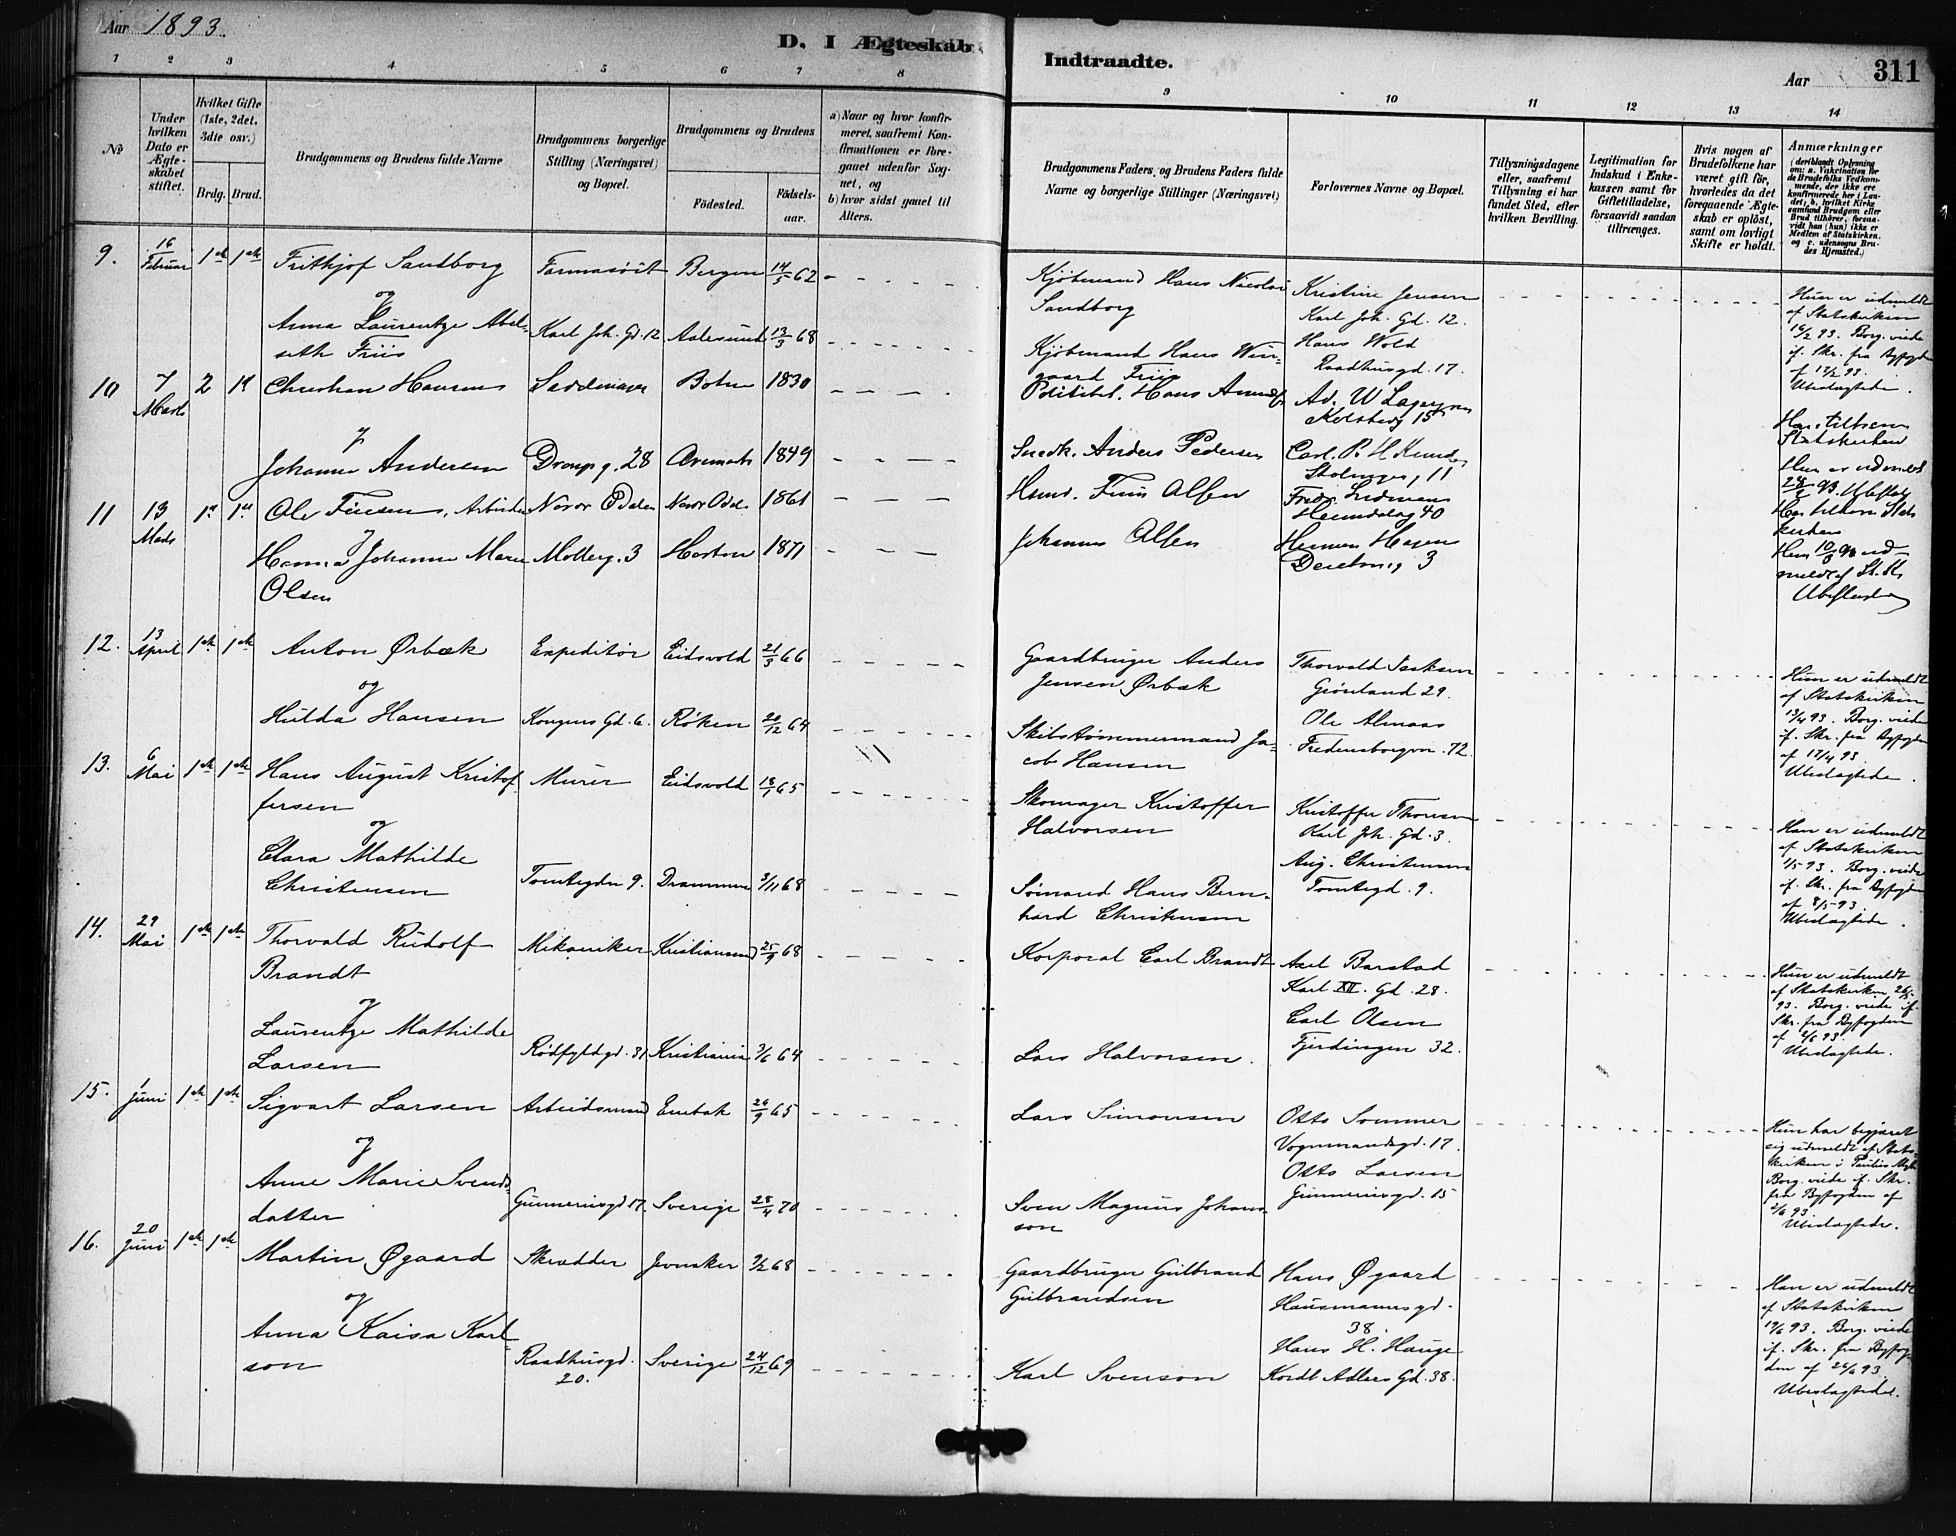 Aar 1893.
D. I Ægteskab Indtraadte.
Aar
311
1 2 3 4 5 6 7 8 9 10 11 12 13 14
No
Under hvilken Dato er Ægteskabet stiftet.
Hvilket Gifte (1ste, 2det, 3die osv.)
Brdg. Brud.
Brudgommens og Brudens fulde Navne
Brudgommens borgerlige Stilling (Næringsvei) og Bopæl.
Brudgommens og Brudens
Födested. Födselsaar.
a) Naar og hvor konfirmeret, saafremt Konfirmationen er foregaaet udenför Sognet, og
b) hvor sidst gaaet til Alters.
Brudgommens Faders og Brudens Faders fulde Navne og borgerlige Stillinger (Næringsvei)
Forlovernes Navne og Bopæl.
Tillysningsdagene eller, saafremt Tillysning ei har fundet Sted, efter hvilken Bevilling.
Legitimation for Indskud i Enkekassen samt for Giftetilladelse, forsaavidt saadan tiltrænges.
Hvis nogen af Brudefolkene har været gift för, hvorledes da det foregaaende Ægteskab er oplöst, samt om lovligt Skifte er holdt.
Anmærkninger
(deriblandt Oplysning om: a. Vakcination for de Brudefolks Vedkommende, der ikke ere konfirmerede her i Landet, b. hvilket Kirkesamfund Brudgom eller Brud tilhører, forsaavidt han (hun) ikke er Medlem af Statskirken, og c. udensogns Brudes Hjemsted.)
9. 16 Februar 1ste 1ste Frithjof Sandborg Farmasöit Bergen 14/5 62
Kjöbmand Hans Nicolai Sandborg
Kristine Jensen Karl Joh. Gd. 12.
og
Anna Laurentze Abelseth Friis Karl Joh. Gd. 12 Aalesund 13/3 68
Kjöbmand Hans Wingaard Friis
Hans Wold Raadhusgd. 17.
Hun er udmeldt af Statskirken 16/2 93. Borg. viede if. Skr. fra Byfogden af 17/2 93. Ubeslægtede.
10 7 Marts 2 1ste Christian Hansen Botne 1830
Politibet. Hans
Ad. W 15
Johanne Andersen 28 1849
Snedk. Anders Pedersen
Carl 11
Statskirken
Hun er udmeldt
11 13 Marts 1ste 1ste Ole Finsen, Arbeider Nordre Odalen 1861
Finn Olsen
40
Johanne Marie Olsen Mollerg. 3 Horten 1871
Johannes Olsen
Herman Hagen 3
12. 13 April 1ste 1ste Anton Ørbæk Expeditör Eidsvold 21/3 66
Gaardbruger Anders Jensen Ørbæk
Thorvald Isaksen Grönland 29.
og
Hulda Hansen Kongens Gd. 6. Röken 20/12 64
Skibstömmermand Jacob Hansen
Ole Almaas Fredensborgvn. 72.
Hun er udmeldt af Statskirken 13/4 93. Borg. viede if. Skr. fra Byfogden af 17/4 93. Ubeslægtede.
13. 6 Mai 1ste 1ste Hans August Kristoffersen Murer Eidsvold 18/1 65
Skomager Kristoffer Halvorsen
Kristoffer Thoresen Karl Joh. Gd. 3.
og
Clara Mathilde Christensen Tomtegden 9. Drammen 3/11 68
Sömand Hans Bernhard Christensen
Aug. Christensen Tomtegd. 9.
Han er udmeldt af Statskirken 1/5 93. Borg. viede if. Skr. fra Byfogden af 8/5 93. Ubeslægtede.
14. 29 Mai 1ste 1ste Thorvald Rudolf Brandt Mekaniker Kristiansund 25/9 68
Korporal Carl Brandt
Axel Barstad Karl XII. Gd. 28.
og
Laurentze Mathilde Larsen Rödfyldgd. 31 Kristiania 3/6 64
Lars Halvorsen.
Carl Olsen Fjerdingen 32.
Hun er udmeldt af Statskirken 26/5 93. Borg. viede if. Skr. fra Byfogden af 2/6 93. Ubeslægtede.
15. 1 Juni 1ste 1ste Sigvart Larsen Arbeidsmand Enebak 26/9 65
Lars Simonsen
Otto Sommer Vognmandsgd. 17.
og
Anne Marie Svendsdatter Gunneriusgd 17. Sverige 28/4 70
Sven Magnus Johansson
Otto Larsen Gunneriusgd. 15
Hun har begjæret sig udmeldt af Statskirken i Paulus Borg. viede if. Skr. fra Byfogden af 2/6 93. Ubeslægtede.
16. 20 Juni 1ste 1ste Martin Øgaard Skrædder Jevnaker 9/2 68
Gaardbruger Gulbrand Gulbrandsen
Hans Øgaard Hausmannsgd. 38.
og
Anna Kaisa Karlson Raadhusgd. 20. Sverige 24/12 69
Karl Svenson
Hans H. Hauge Kordt Adlers Gd. 38.
Han er udmeldt af Statskirken 19/6 93. Borg. viede if. Skr. fra Byfogden af 26/6 93. Ubeslægtede.